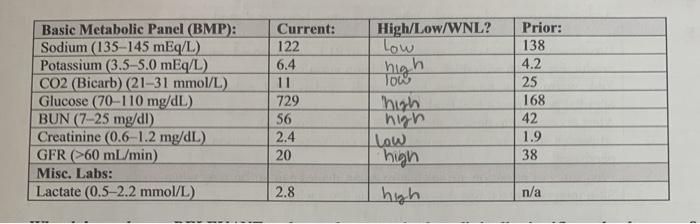 Basic Metabolic Panel (BMP): Current: High/Low/WNL? Prior:
Sodium (135–145 mEq/L) 122 Low 138
Potassium (3.5–5.0 mEq/L) 6.4 high 4.2
CO2 (Bicarb) (21–31 mmol/L) 11 low 25
Glucose (70–110 mg/dL) 729 high 168
BUN (7–25 mg/dl) 56 high 42
Creatinine (0.6–1.2 mg/dL) 2.4 Low 1.9
GFR (>60 mL/min) 20 high 38
Misc. Labs:
Lactate (0.5–2.2 mmol/L) 2.8 high n/a